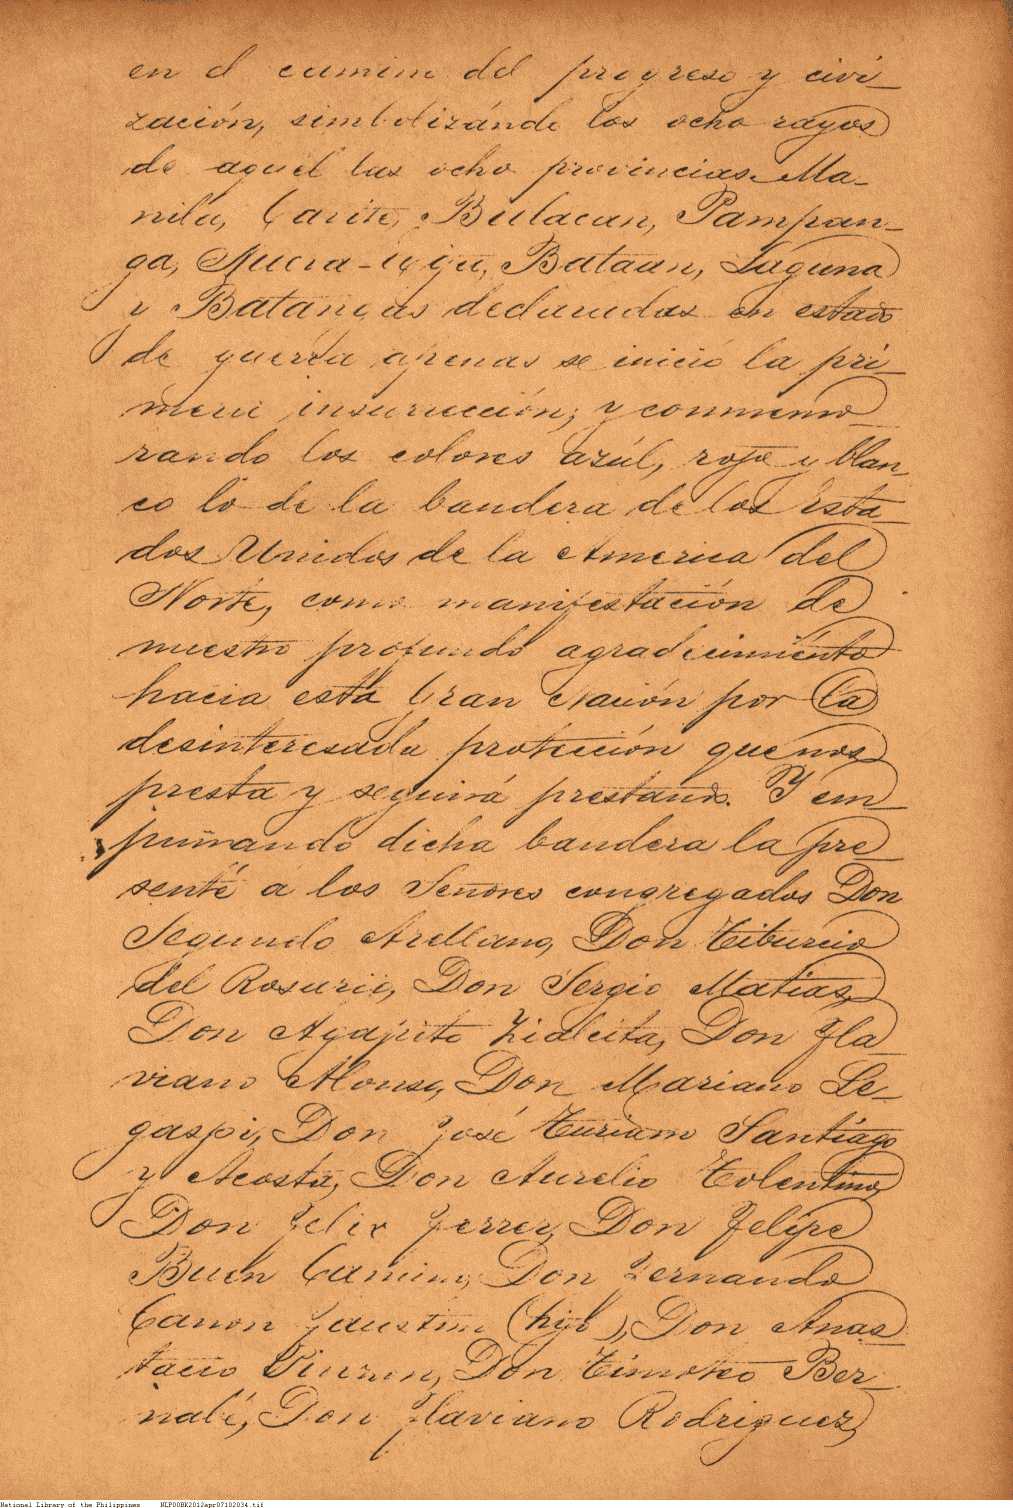 en el camino del progreso y civi-
zación, simbolizándo los ocho rayos
de aquel las ocho provincias Ma-
nila, Cavite, Bulacan, Pampan-
ga, Nueva-Ecija, Bataan, Laguna
y Batangas declaradas en estado
de guerra apenas se inició la pri-
mera insurrección; y conmemo-
rando los colores azúl, rojo y blan
co lo de la bandera de los Esta-
dos Unidos de la America del
Norte, como manifestación de
nuestro profundo agradecimiénto
hacia esta Gran Nación por la
desinteresada protección que nos
presta y seguirá prestando. Y em-
puñando dicha bandera la pre-
senté á los Señores congregados Don
Segundo Arellano, Don Tiburcio
del Rosario, Don Sergio Matias,
Don Agapito Zialcita, Don Fla-
viano Alonso, Don Mariano Le-
gaspi, Don José Turiano Santiago
y Acosta, Don Aurelio Tolentino,
Don Felix Ferrer, Don Felipe
Buen Camino, Don Fernando
Canon Faustino (hijo), Don Anas
tacio Pinzon, Don Timoteo Ber-
nabé, Don Flaviano Rodriguez,
National Library of the Philippines NLPOOBK2012apr07102034.tif